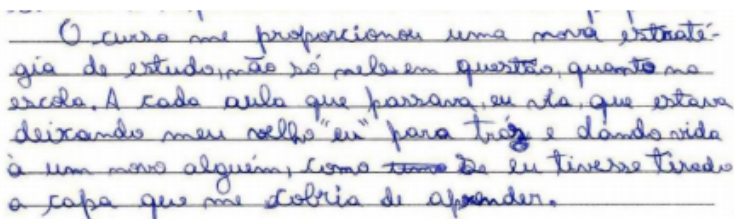 O curso me proporcionou uma nova estraté-
gia de estudo, não só nele em questão, quanto na
escola. A cada aula que passava, eu via, que estava
deixando meu velho "eu" para tráz e dando vida
à um novo alguém, como se eu tivesse tirado
a capa que me cobria de aprender.